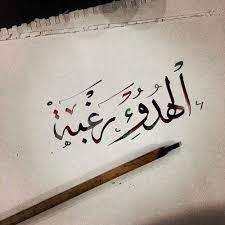 الْهُدُوْءُ رَغْبَة